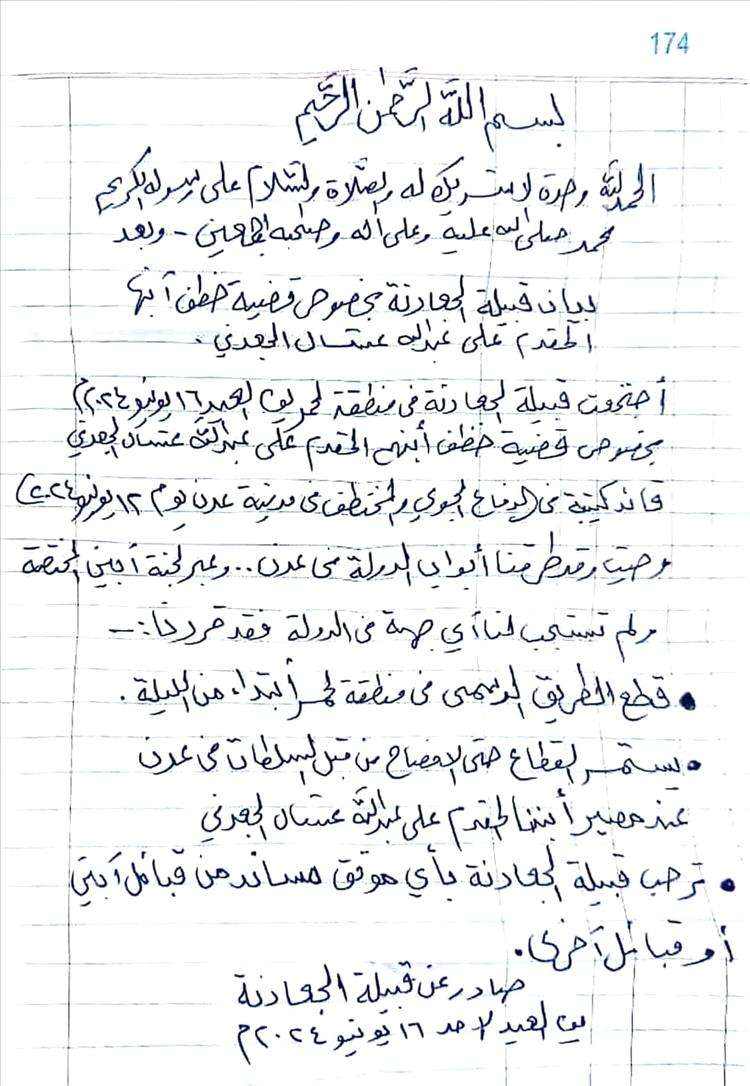 174
بسم اللَّه الرَّحمٰن الرَّحَيم
الحمدللَّه وحدة لا شريك له والصَّلاة والسَّلام على رسوله الكريم
محمد صلى الله علية وعلى آله وصحبه اجمعين - وبعد
بيان قبيلة الجعادنة بخصوص قضية خطف آبنها
المقدم علي عبدالله عشال الجعدني .
أجتمعت قبيلة الجعادنة في منطقة لحمر يوم العيد ١٦ يونيو ٢٠٢٤م
بخصوص قضية خطف أبنهم المقدم علي عبداللَّه عشال الجعدني
قائد كتيبة في (الدفاع الجوي والمختطف في مدينة عدن يوم ١٢ يونيو ٢٠٢٤)
وحيث وقد طرقنا أبواب الدولة في عدن .. وعبر لجنة أبين المختصة
ولم تستجب لنا أي جهة في الدولة فقد قررنا :-
• قطع الطريق الرسمي في منطقة لحمر أبتداء من الليلة .
• يستمر القطاع حتى الافصاح من قبل السلطات في عدن
عند مصير أبننا المقدم علي عبداللَّه عشال الجعدني
• ترحب قبيلة الجعادنة بأي موقف مساند من قبائل آبين
أو قبائل آخرى .
صادر عن قبيلة الجعادنة
يوم العيد لاحد ١٦ يونيو ٢٠٢٤م